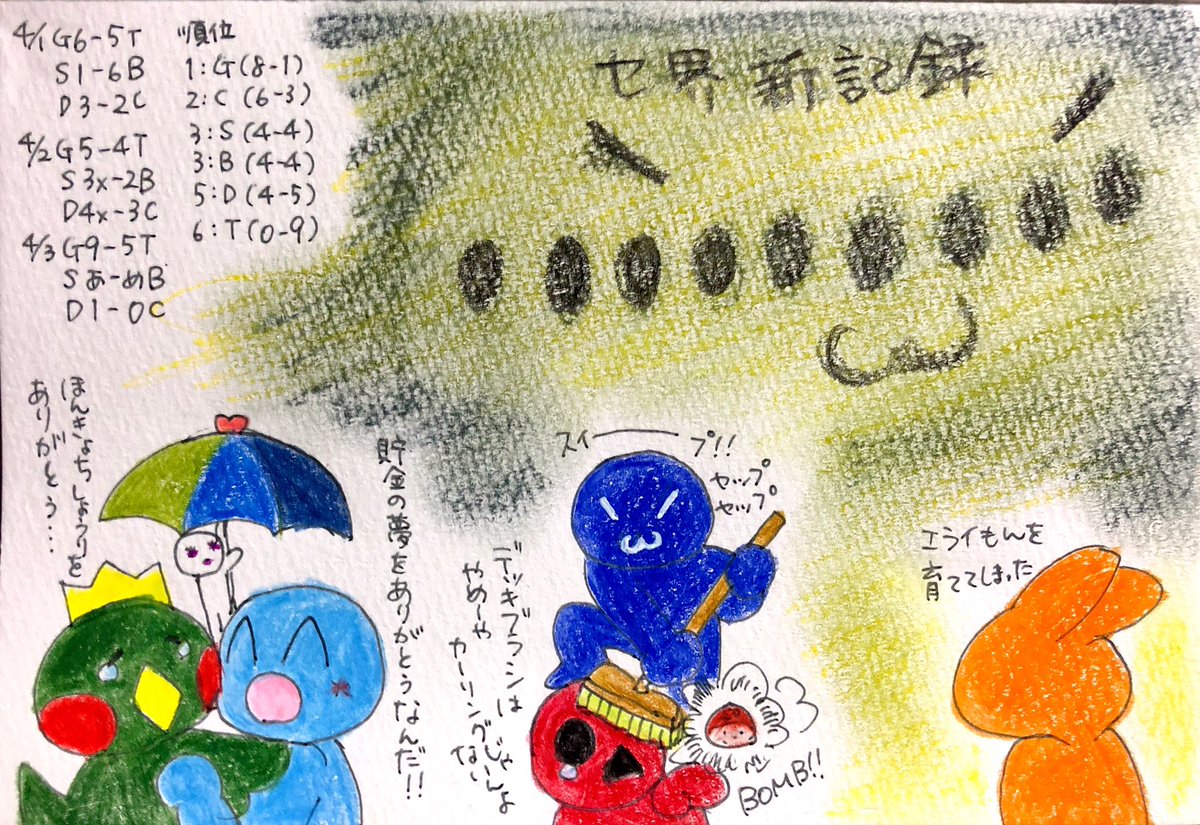 4/1 G6-5T
S1-6B
D3-2C
4/2 G5-4T
S3x-2B
D4x-3C
4/3 G9-5T
Sあ-めB
D1-0C
順位
1:G(8-1)
2:C(6-3)
3:S(4-4)
3:B(4-4)
5:D(4-5)
6:T(0-9)
セ界新記録
ほんきょちしょうりを
ありがとう…
貯金の夢をありがとうなんだ!!
スイープ!!
ヤップ
ヤップ
デッキブラシは
やめーや
カーリングじゃ
ねーんよ
BOMB!!
エライもんを
育ててしまった